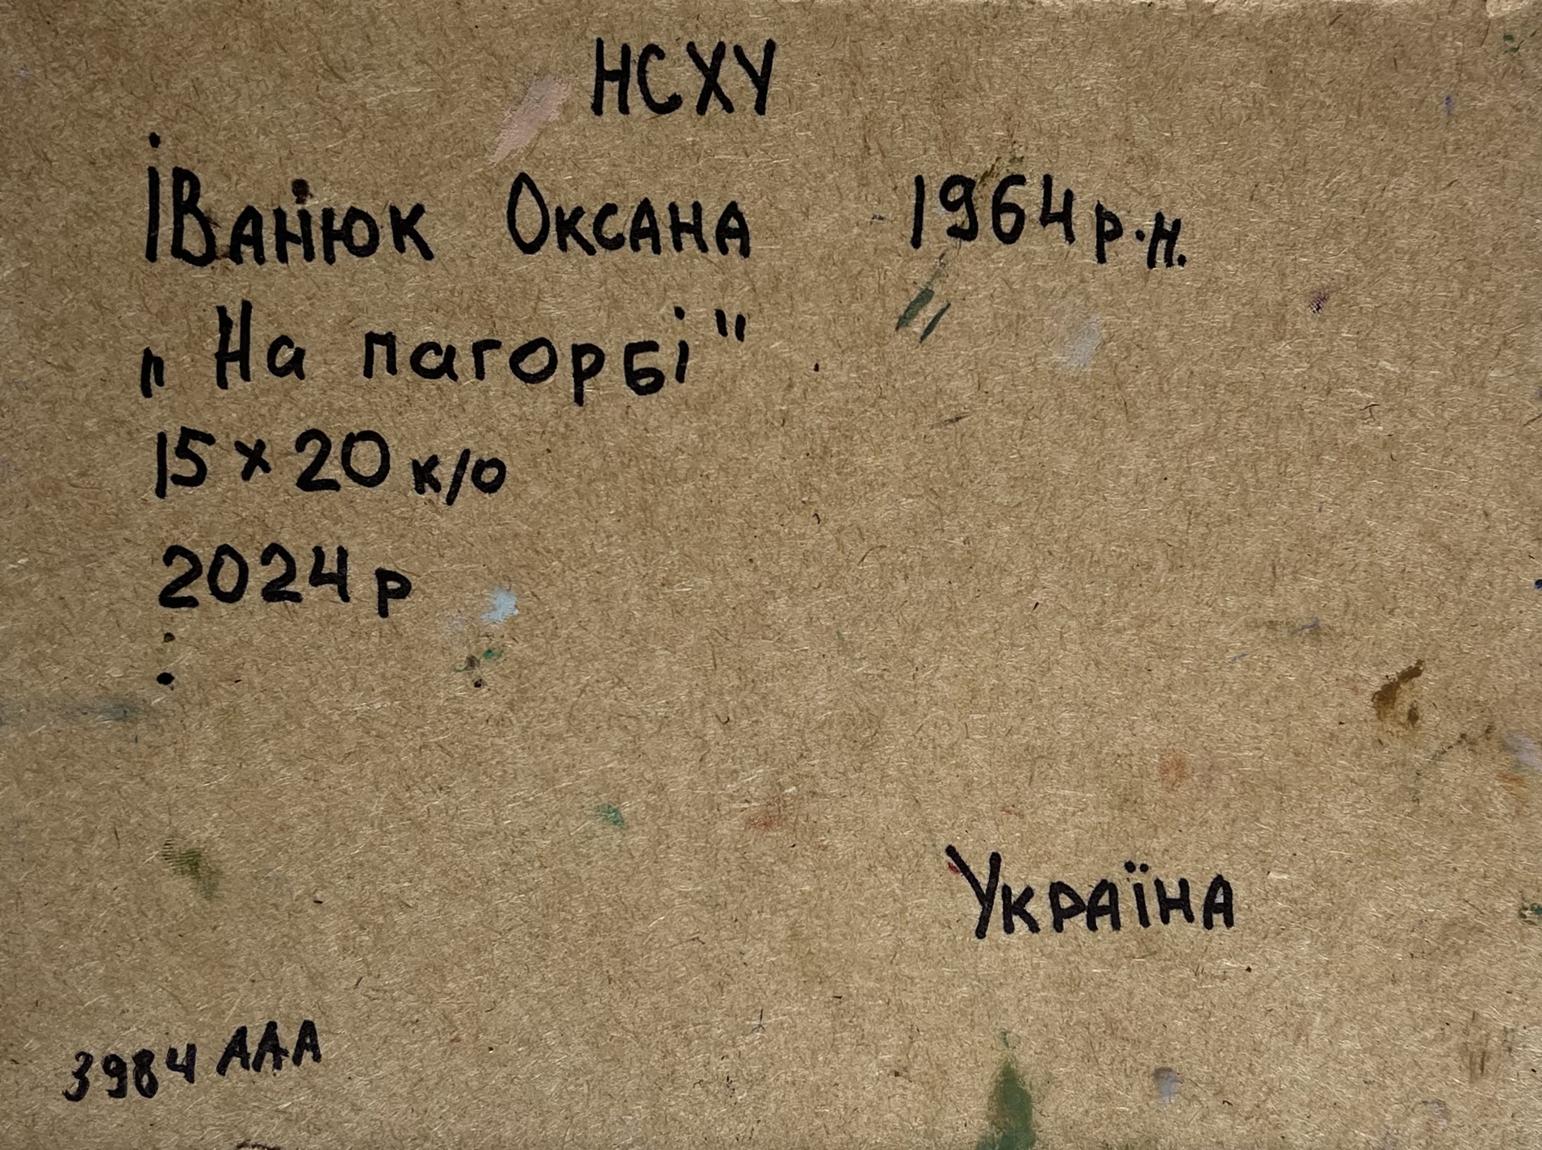 НСХУ
Іванюк Оксана 1964 р.н.
„На пагорбі"
15 × 20 к/о
2024 р
Україна
3984 ААА